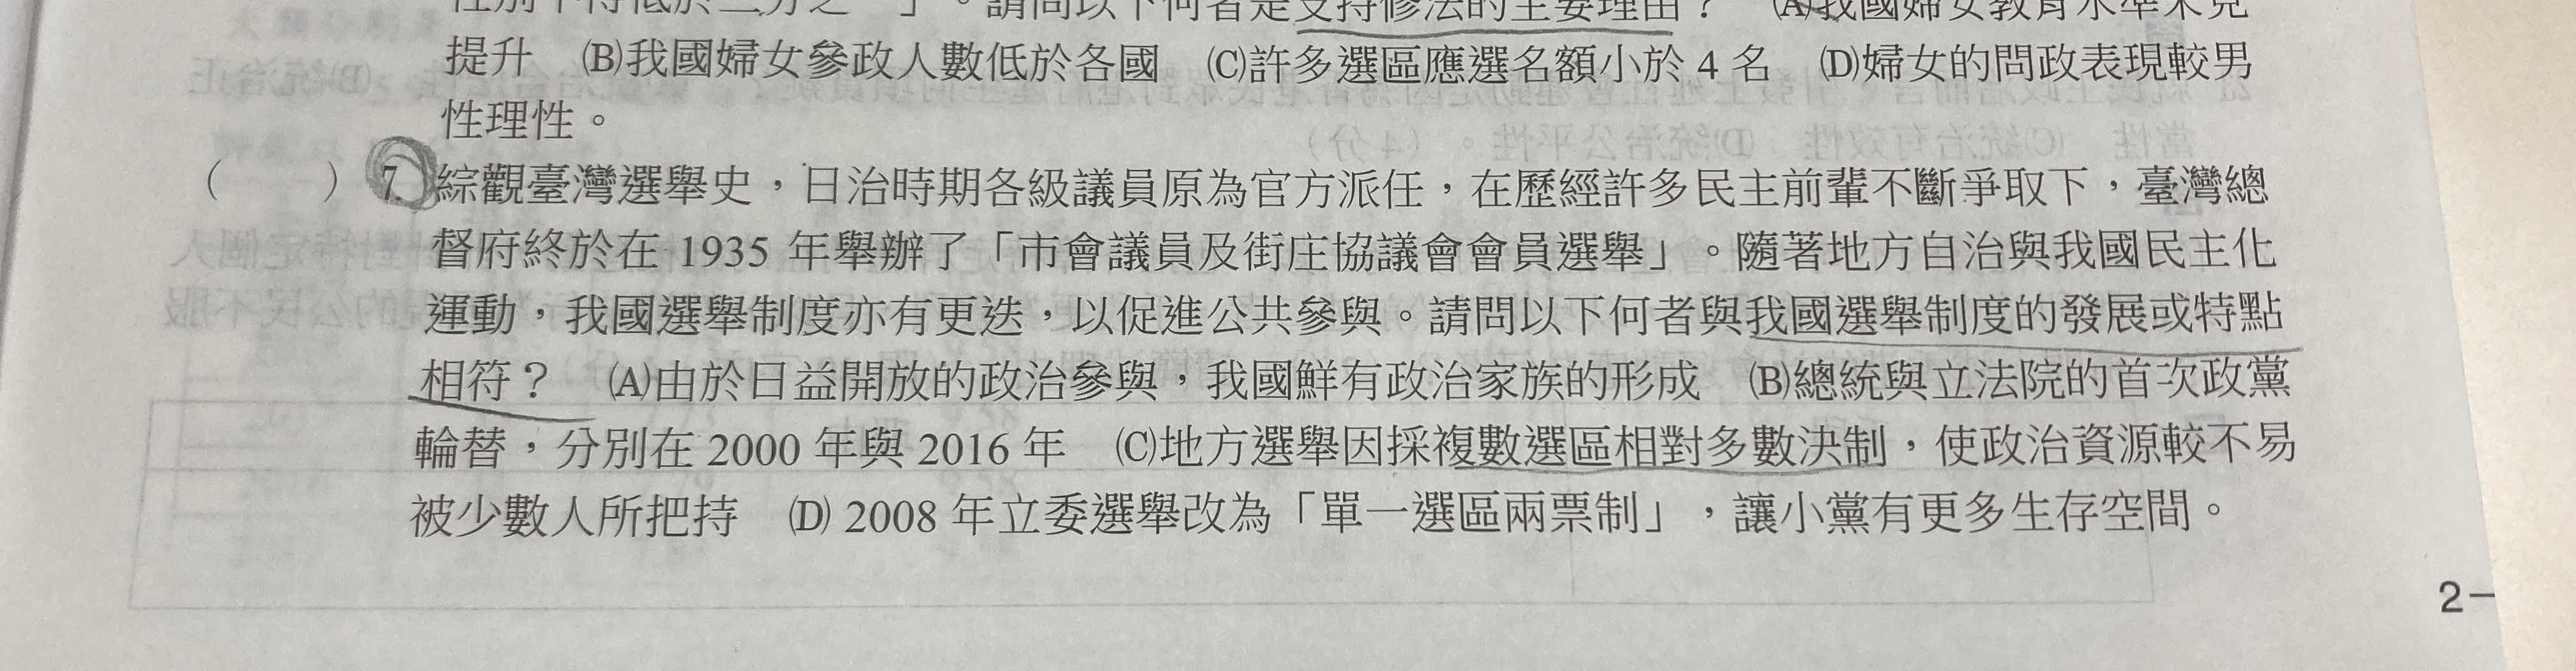 性別不得低於三分之一」。請問以下何者是支持修法的主要理由？　(A)我國婦女教育水準未見
提升　(B)我國婦女參政人數低於各國　(C)許多選區應選名額小於 4 名　(D)婦女的問政表現較男
性理性。
（　　）7. 綜觀臺灣選舉史，日治時期各級議員原為官方派任，在歷經許多民主前輩不斷爭取下，臺灣總
督府終於在 1935 年舉辦了「市會議員及街庄協議會會員選舉」。隨著地方自治與我國民主化
運動，我國選舉制度亦有更迭，以促進公共參與。請問以下何者與我國選舉制度的發展或特點
相符？　(A)由於日益開放的政治參與，我國鮮有政治家族的形成　(B)總統與立法院的首次政黨
輪替，分別在 2000 年與 2016 年　(C)地方選舉因採複數選區相對多數決制，使政治資源較不易
被少數人所把持　(D) 2008 年立委選舉改為「單一選區兩票制」，讓小黨有更多生存空間。
2－